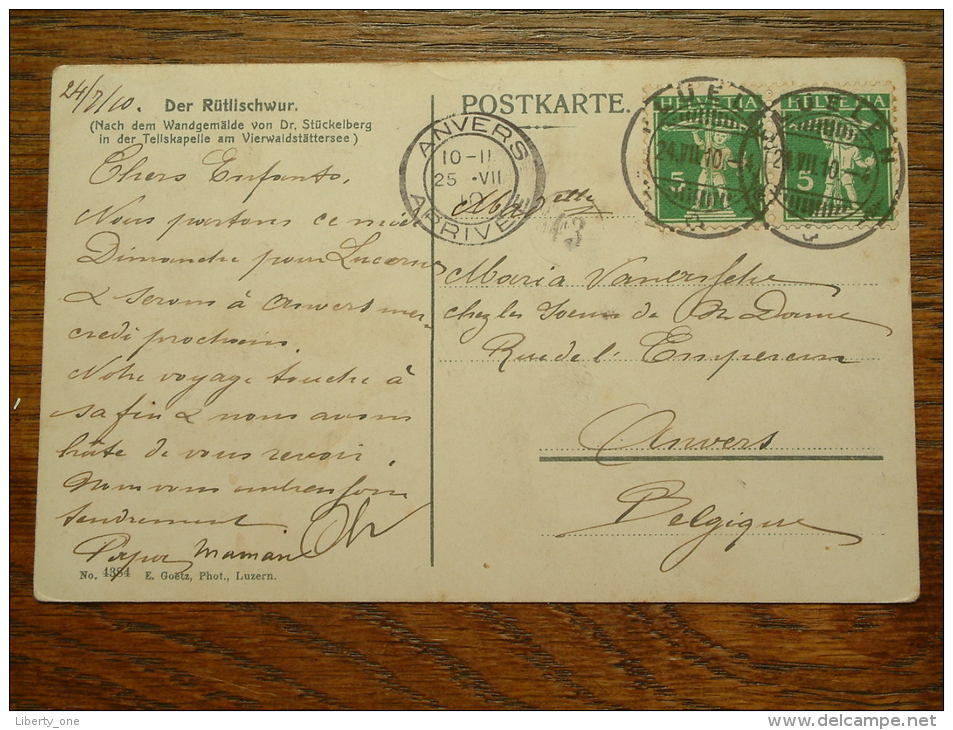 24/7/10.
Der Rütlischwur.
(Nach dem Wandgemälde von Dr. Stückelberg
in der Tellskapelle am Vierwaldstättersee)
Chers Enfants,
Nous partons ce
Dimanche pour Lucerne
& serons à Anvers mer-
credi prochain.
Notre voyage touche à
sa fin & nous avons
hâte de vous revoir.
Nous vous embrassons
tendrement
Papa Maman
No. 4384 E. Goetz, Phot., Luzern.
POSTKARTE.
ANVERS
10-11
25 VII
ARRIVEE
HELVETIA
5
24.VII.10.
HELVETIA
5
24.VII.10.
43
Maria
chez les Soeurs de N. Dame
Rue de l'Empereur
Anvers
Belgique
Liberty_one
http://www.delcampe.net